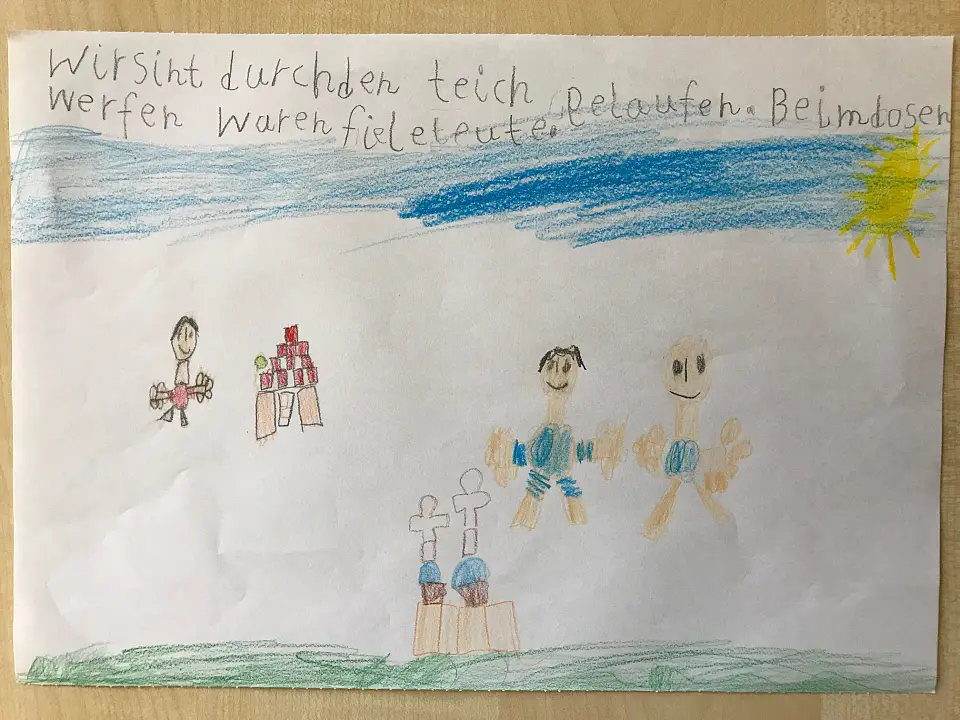 Wir sint durchden teich gelaufen. Beimdosen
werfen waren fieleleute.